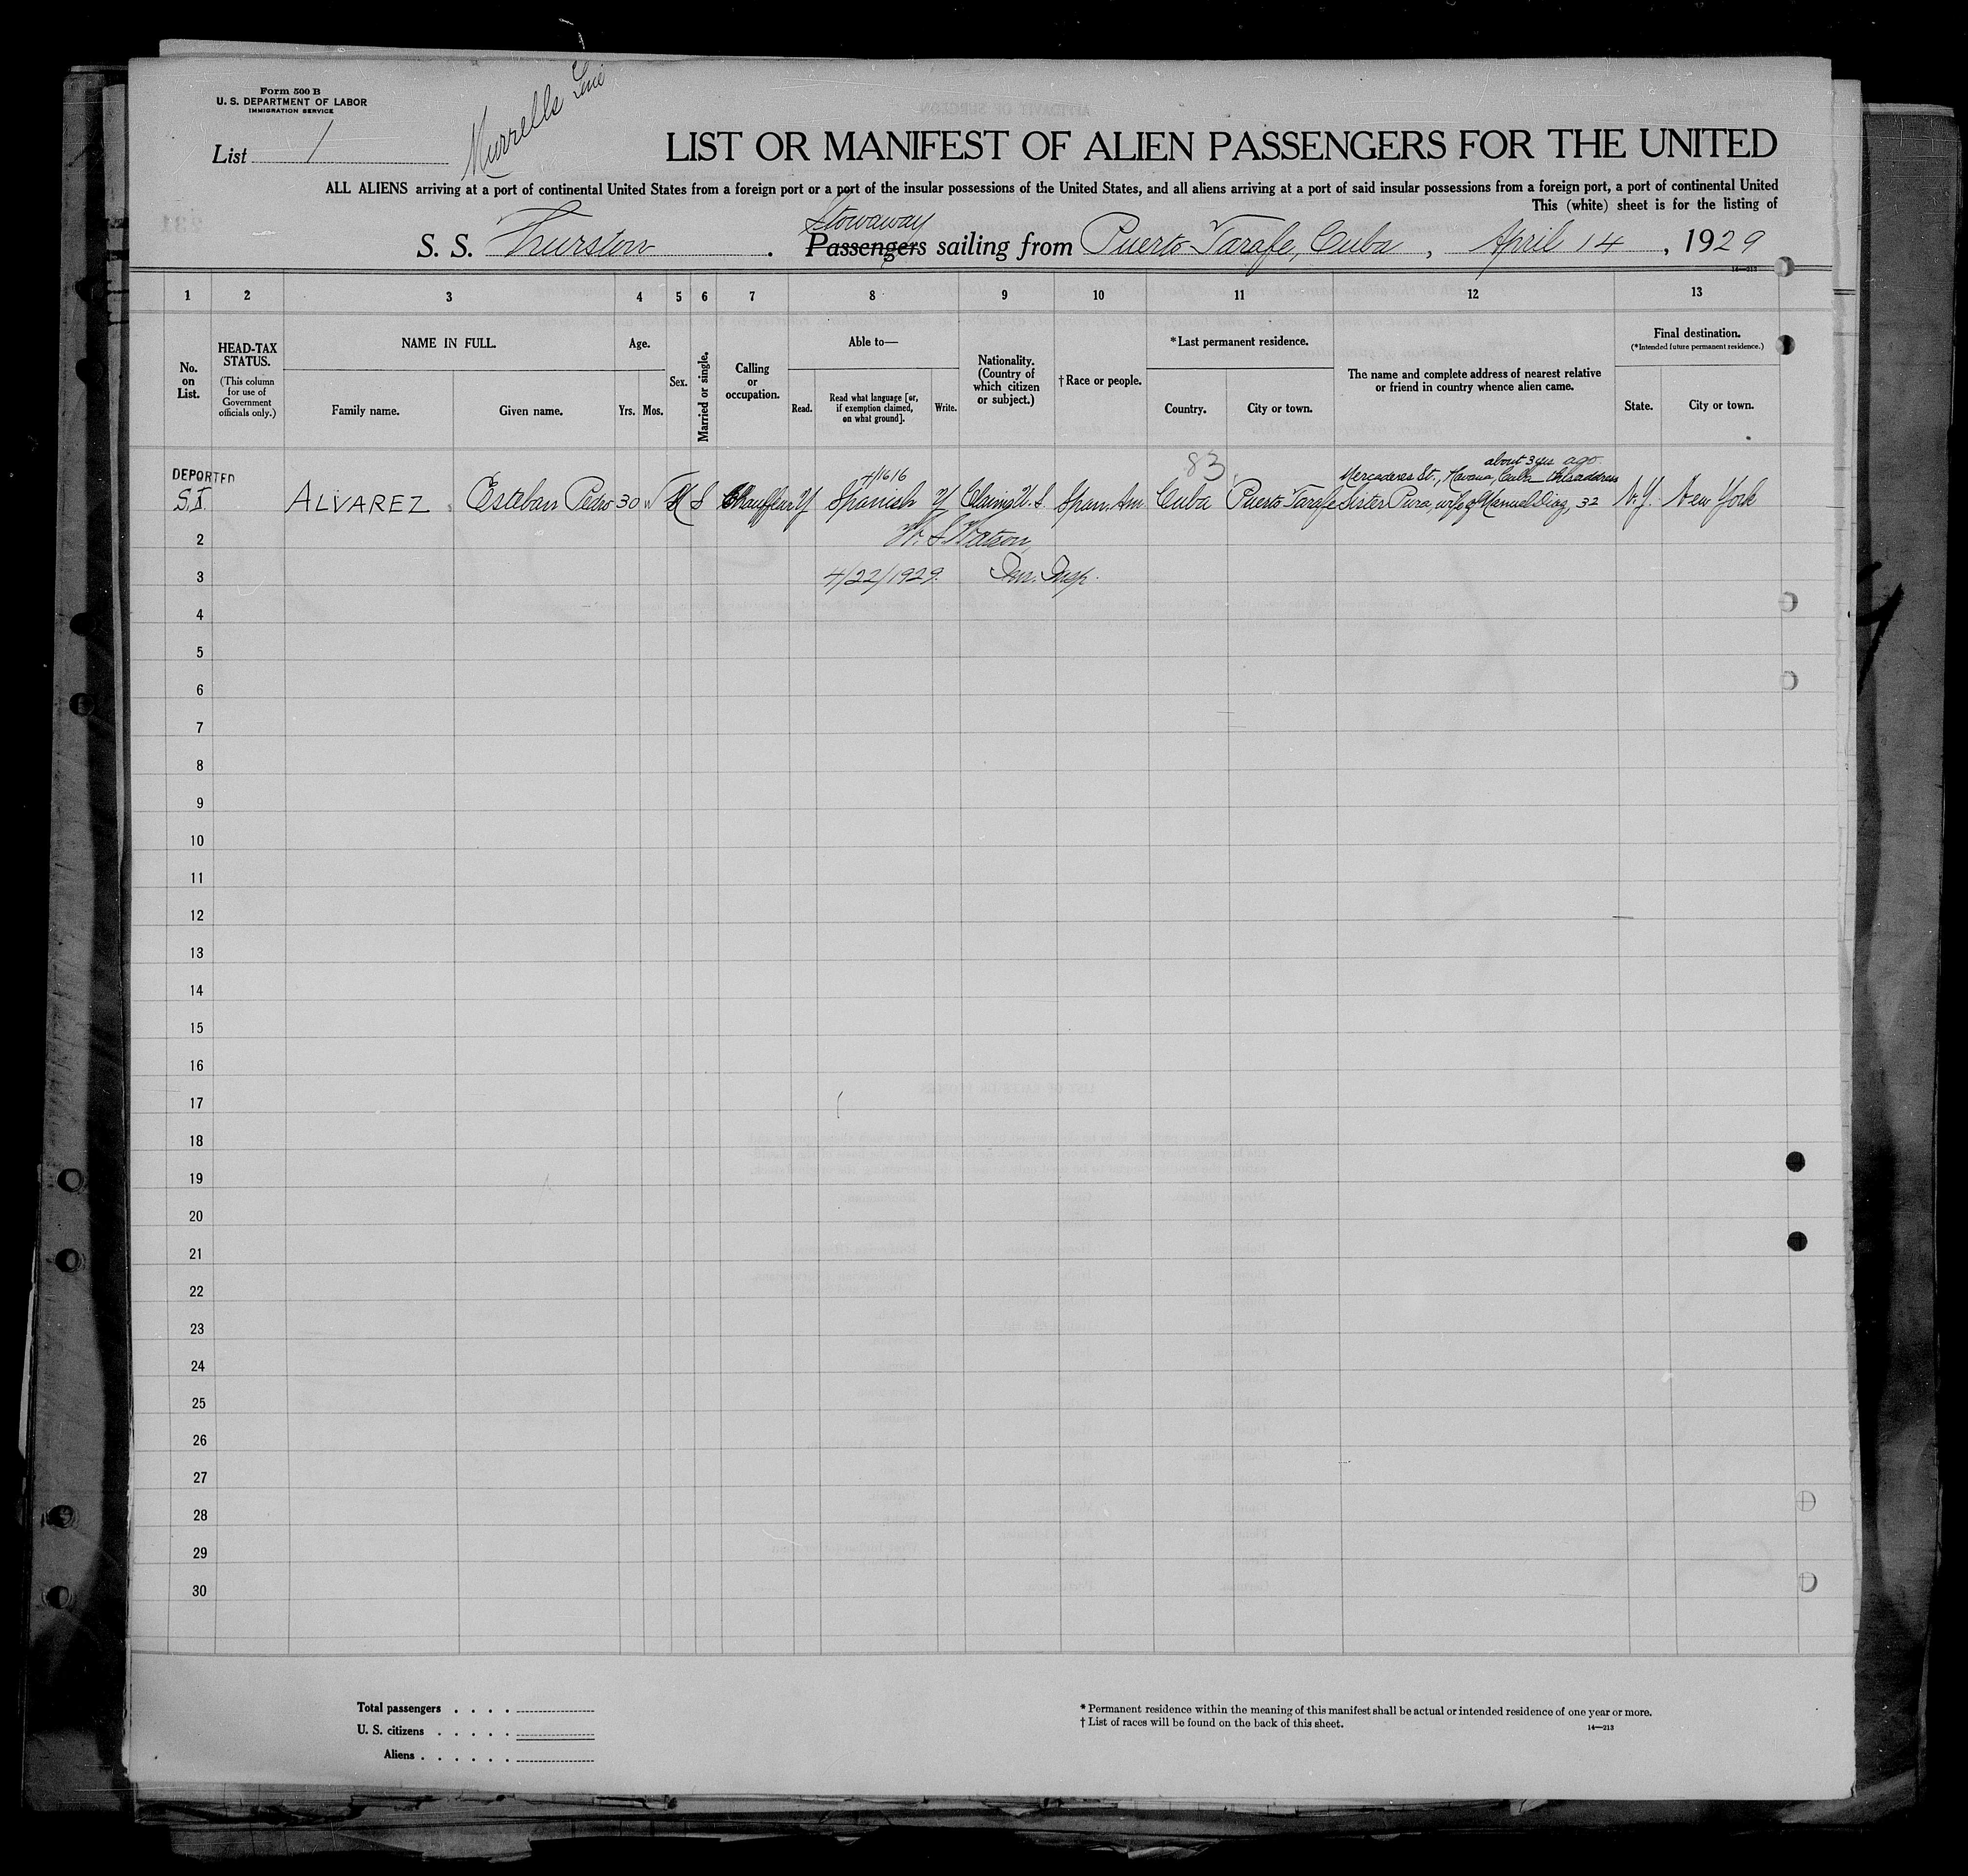 Form 500 B
U. S. DEPARTMENT OF LABOR
IMMIGRATION SERVICE
Murrells Line
List 1
LIST OR MANIFEST OF ALIEN PASSENGERS FOR THE UNITED
ALL ALIENS arriving at a port of continental United States from a foreign port or a port of the insular possessions of the United States, and all aliens arriving at a port of said insular possessions from a foreign port, a port of continental United
This (white) sheet is for the listing of
Stowaway
S. S. Thurston. Passengers sailing from Puerto Tarafe, Cuba, April 14, 1929
14—213
1 2 3 4 5 6 7 8 9 10 11 12 13
No. on List.
HEAD-TAX STATUS.
(This column for use of Government officials only.)
NAME IN FULL.
Family name. Given name.
Age.
Yrs. Mos.
Sex.
Married or single.
Calling or occupation.
Able to—
Read. Read what language [or, if exemption claimed, on what ground]. Write.
Nationality. (Country of which citizen or subject.)
†Race or people.
*Last permanent residence.
Country. City or town.
The name and complete address of nearest relative or friend in country whence alien came.
Final destination.
(*Intended future permanent residence.)
State. City or town.
83
about 3 yrs ago
DEPORTED 4/1616 Mercaderes St., Havana, Cuba this address
S.I. ALVAREZ Esteban Pedro 30 M S Chauffeur Y Spanish Y Claims U.S. Span. Am Cuba Puerto Tarafe Sister Pura, wife of Manuel Diaz, 32 N.Y. New York
2 W. S. Watson,
3 4/22/1929. Imm. Insp.
4
5
6
7
8
9
10
11
12
13
14
15
16
17
18
19
20
21
22
23
24
25
26
27
28
29
30
Total passengers . . . .
U. S. citizens . . . . .
Aliens . . . . . .
* Permanent residence within the meaning of this manifest shall be actual or intended residence of one year or more.
† List of races will be found on the back of this sheet.
14—213